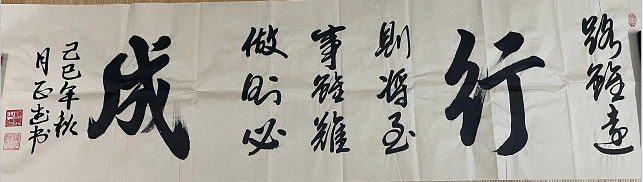 路雖遠
行
則將至
事雖難
做則必
成
己巳年秋
月
书